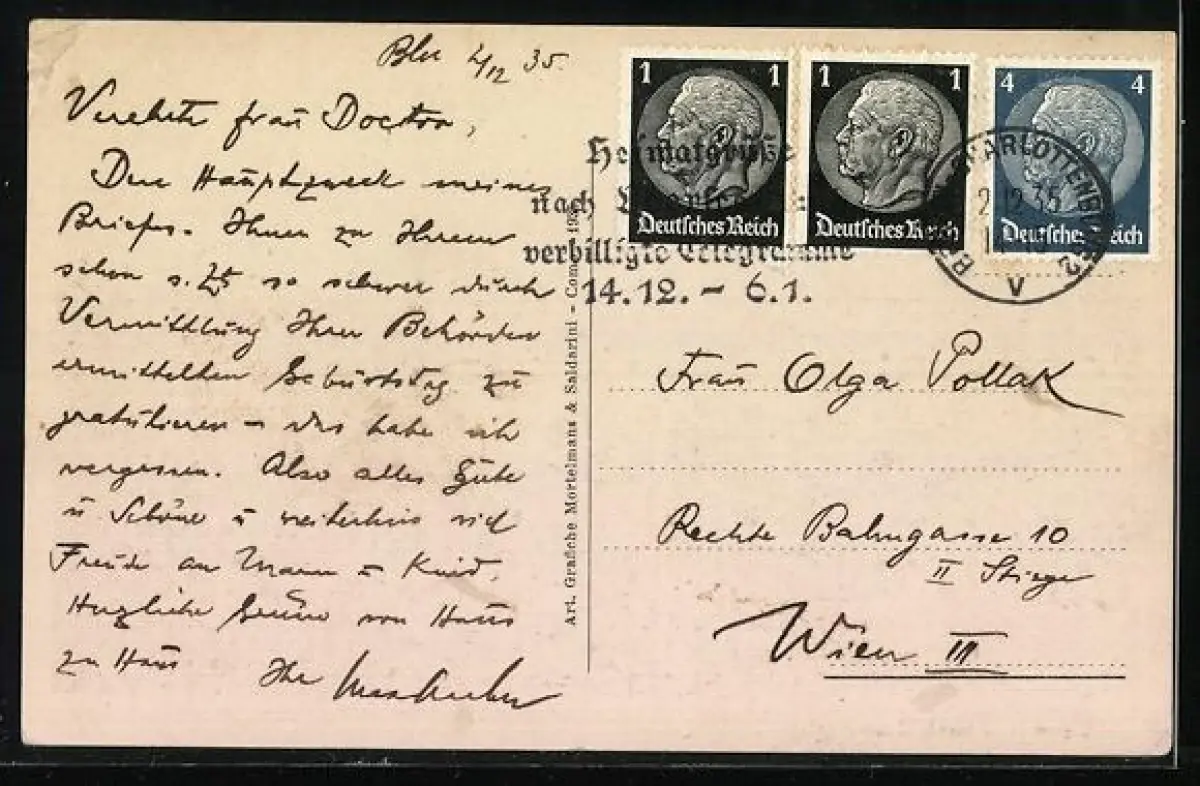 Bln 4/12 35.
Verehrte Frau Doctor,
Den Hauptzweck meines
Briefes. Ihnen zu Ihrem
schon s. Zt so schwer durch
Vermittlung Ihrer Behörden
ermittelten Geburtstag zu
gratulieren – das habe ich
vergessen. Also alles Gute
u Schöne u weiterhin viel
Freude an Mann u Kind.
Herzliche Grüße von Haus
zu Haus Ihr
Art. Grafiche Mortelmans & Saldarini - Como
1 1
Deutsches Reich
1 1
Deutsches Reich
4 4
Deutsches Reich
Heimatgrüße
nach
verbilligte Telegramme
14.12. – 6.1.
CHARLOTTENBURG 2
12.35
V
Frau Olga Pollak
Rechte Bahngasse 10
II Stiege
Wien III